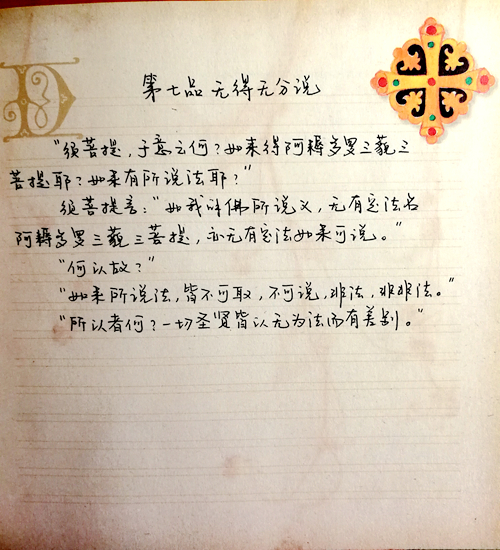 第七品 无得无分说
“须菩提，于意云何？如来得阿耨多罗三藐三
菩提耶？如来有所说法耶？”
须菩提言：“如我叫佛所说义，无有定法名
阿耨多罗三藐三菩提，亦无有定法如来可说。”
“何以故？”
“如来所说法，皆不可取，不可说，非法，非非法。”
“所以者何？一切圣贤皆以无为法而有差别。”